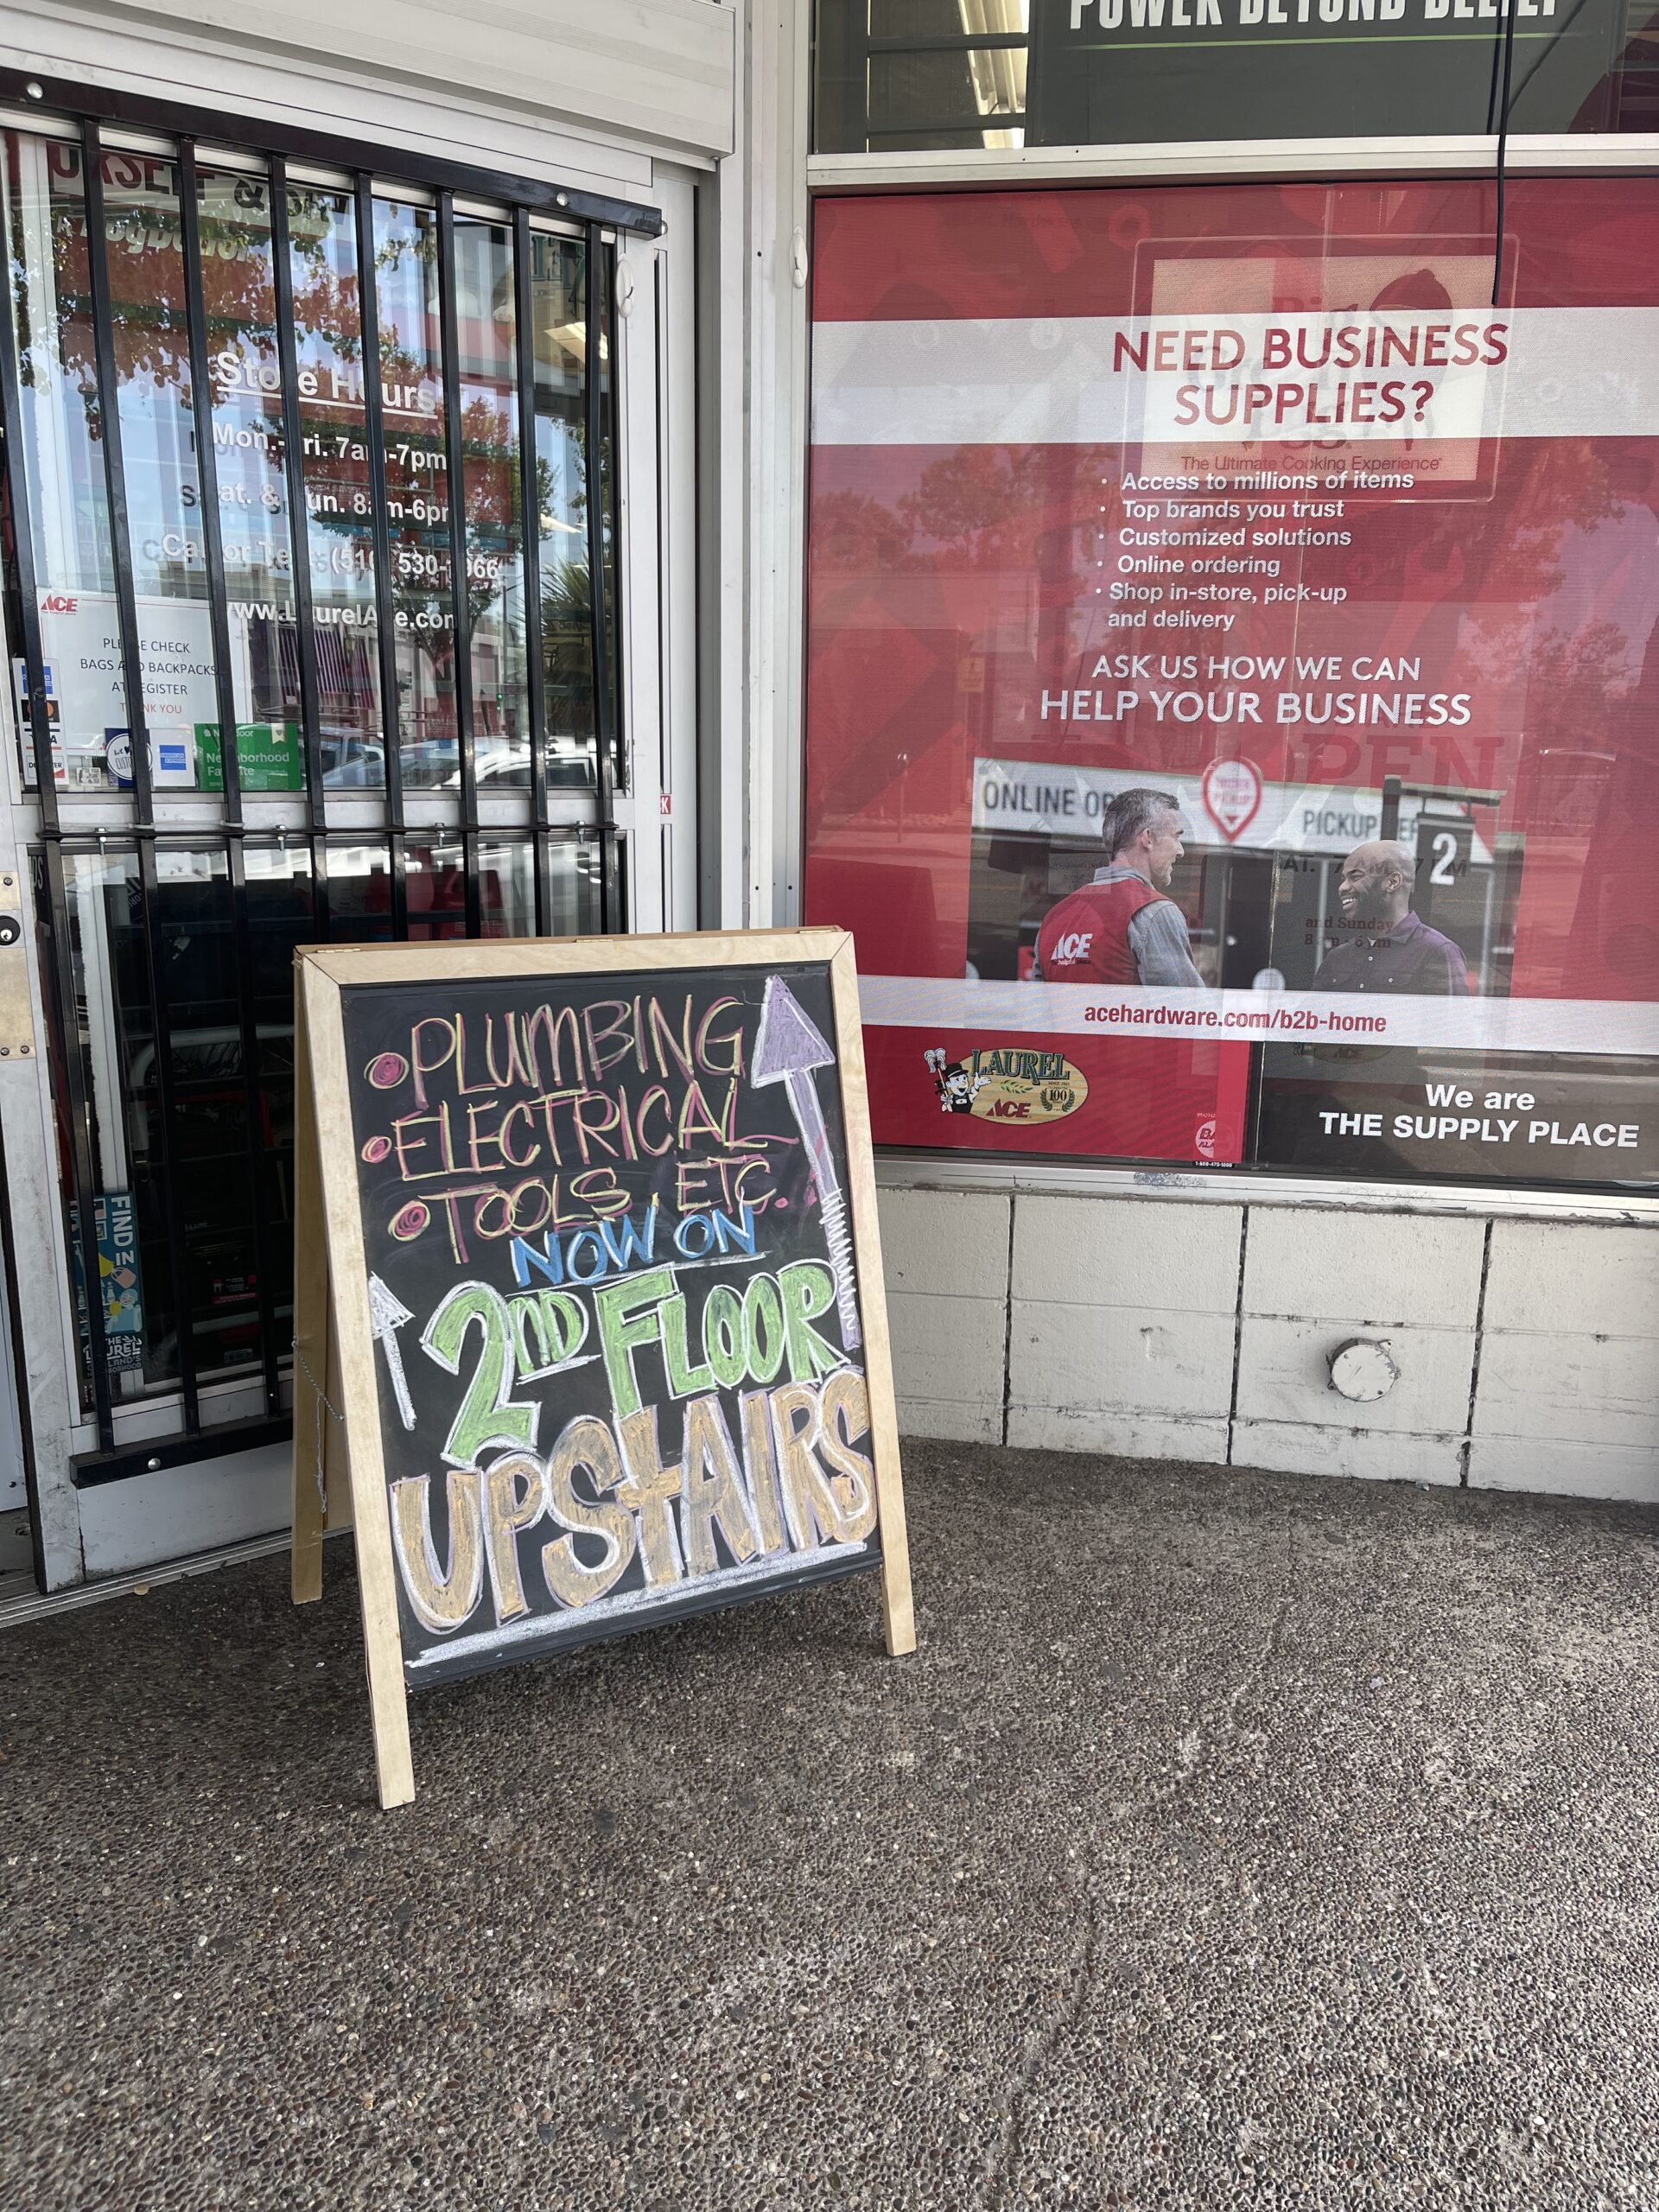 POWER BEYOND BELIEF
Store Hours
Mon.- Fri. 7am-7pm
Sat. & Sun. 8am-6pm
Call or Text (510) 530-
www.LaurelAce.com
ACE
PLEASE CHECK
BAGS AND BACKPACKS
AT REGISTER
THANK YOU
Nextdoor
Neighborhood
Favorite
FIND IN
THE
LAUREL
NEED BUSINESS
SUPPLIES?
The Ultimate Cooking Experience®
• Access to millions of items
• Top brands you trust
• Customized solutions
• Online ordering
• Shop in-store, pick-up
and delivery
ASK US HOW WE CAN
HELP YOUR BUSINESS
OPEN
ONLINE
PICKUP
2
ACE
and Sunday
acehardware.com/b2b-home
LAUREL
100
ACE
We are
THE SUPPLY PLACE
• PLUMBING
• ELECTRICAL
• TOOLS ETC.
NOW ON
2ND FLOOR
UPSTAIRS